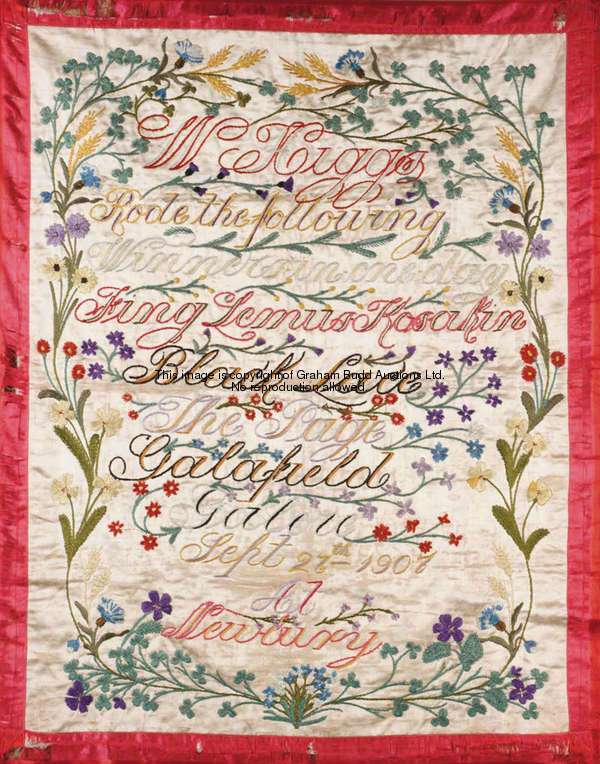 W Higgs
Rode the following
Winners in one day
King Lemus Kosakin
Black
This image is copyright of Graham Budd Auctions Ltd.
No reproduction allowed.
The Page
Galafield
Galin
Sept 27th 1907
At
Newbury